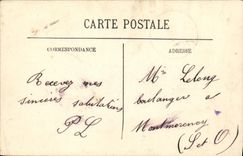 CARTE POSTALE
CORRESPONDANCE
ADRESSE
Recevez mes
sincères salutations
P L
Mr Lelong
boulanger à
Montmorency
(S et O)